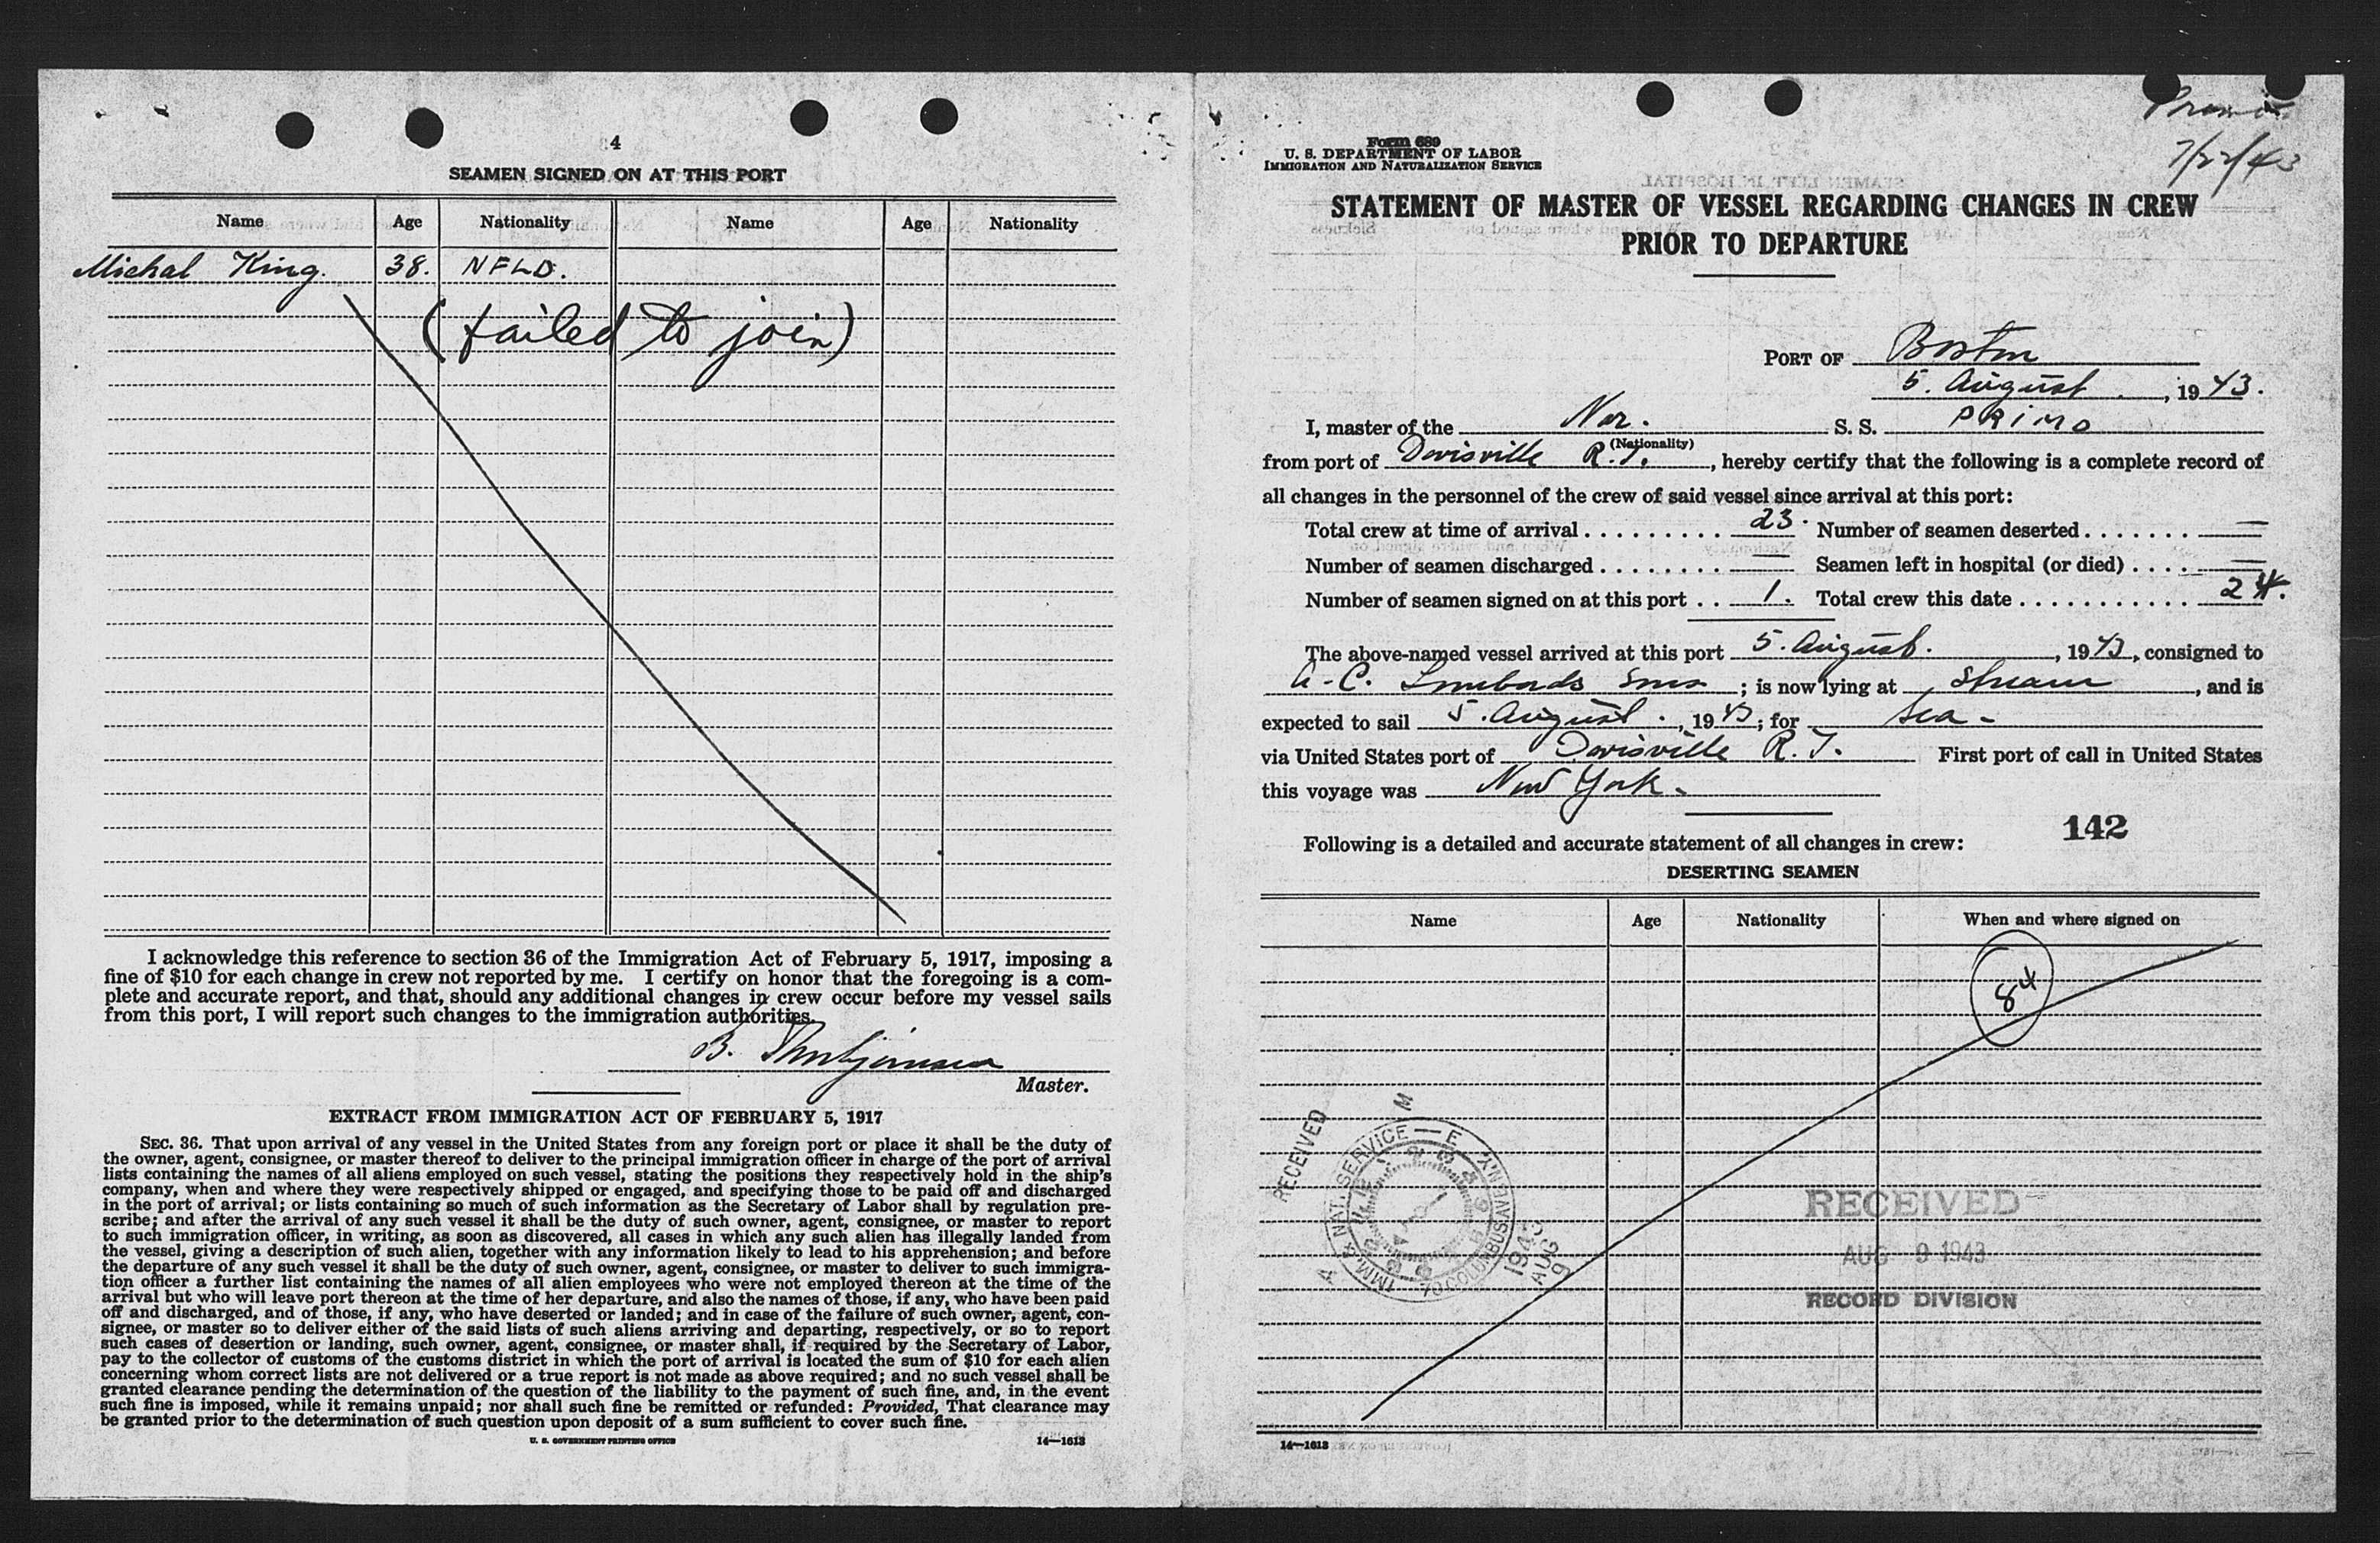 4
SEAMEN SIGNED ON AT THIS PORT
Name Age Nationality Name Age Nationality
Michal King. 38. NFLD.
(failed to join)
I acknowledge this reference to section 36 of the Immigration Act of February 5, 1917, imposing a
fine of $10 for each change in crew not reported by me. I certify on honor that the foregoing is a com-
plete and accurate report, and that, should any additional changes in crew occur before my vessel sails
from this port, I will report such changes to the immigration authorities.
B.
Master.
EXTRACT FROM IMMIGRATION ACT OF FEBRUARY 5, 1917
SEC. 36. That upon arrival of any vessel in the United States from any foreign port or place it shall be the duty of
the owner, agent, consignee, or master thereof to deliver to the principal immigration officer in charge of the port of arrival
lists containing the names of all aliens employed on such vessel, stating the positions they respectively hold in the ship's
company, when and where they were respectively shipped or engaged, and specifying those to be paid off and discharged
in the port of arrival; or lists containing so much of such information as the Secretary of Labor shall by regulation pre-
scribe; and after the arrival of any such vessel it shall be the duty of such owner, agent, consignee, or master to report
to such immigration officer, in writing, as soon as discovered, all cases in which any such alien has illegally landed from
the vessel, giving a description of such alien, together with any information likely to lead to his apprehension; and before
the departure of any such vessel it shall be the duty of such owner, agent, consignee, or master to deliver to such immigra-
tion officer a further list containing the names of all alien employees who were not employed thereon at the time of the
arrival but who will leave port thereon at the time of her departure, and also the names of those, if any, who have been paid
off and discharged, and of those, if any, who have deserted or landed; and in case of the failure of such owner, agent, con-
signee, or master so to deliver either of the said lists of such aliens arriving and departing, respectively, or so to report
such cases of desertion or landing, such owner, agent, consignee, or master shall, if required by the Secretary of Labor,
pay to the collector of customs of the customs district in which the port of arrival is located the sum of $10 for each alien
concerning whom correct lists are not delivered or a true report is not made as above required; and no such vessel shall be
granted clearance pending the determination of the question of the liability to the payment of such fine, and, in the event
such fine is imposed, while it remains unpaid; nor shall such fine be remitted or refunded: Provided, That clearance may
be granted prior to the determination of such question upon deposit of a sum sufficient to cover such fine.
U. S. GOVERNMENT PRINTING OFFICE 14—1613
7/22/43
Form 689
U. S. DEPARTMENT OF LABOR
IMMIGRATION AND NATURALIZATION SERVICE
STATEMENT OF MASTER OF VESSEL REGARDING CHANGES IN CREW
PRIOR TO DEPARTURE
PORT OF Boston
5. August, 1943.
I, master of the Nor. S. S. PRIMO
(Nationality)
from port of Davisville R.I., hereby certify that the following is a complete record of
all changes in the personnel of the crew of said vessel since arrival at this port:
Total crew at time of arrival 23. Number of seamen deserted —
Number of seamen discharged — Seamen left in hospital (or died) —
Number of seamen signed on at this port 1. Total crew this date 24.
The above-named vessel arrived at this port 5. August., 1943, consigned to
A.C. Lombards Sons; is now lying at Stream, and is
expected to sail 5. August., 1943; for Sea-
via United States port of Davisville R.I. First port of call in United States
this voyage was New York-
142
Following is a detailed and accurate statement of all changes in crew:
DESERTING SEAMEN
Name Age Nationality When and where signed on
84
RECEIVED
A M
IMM. & NAT. SERVICE — E
70 COLUMBUS AVE N.Y.
1943 AUG 9
RECEIVED
AUG 9 1943
RECORD DIVISION
14—1613